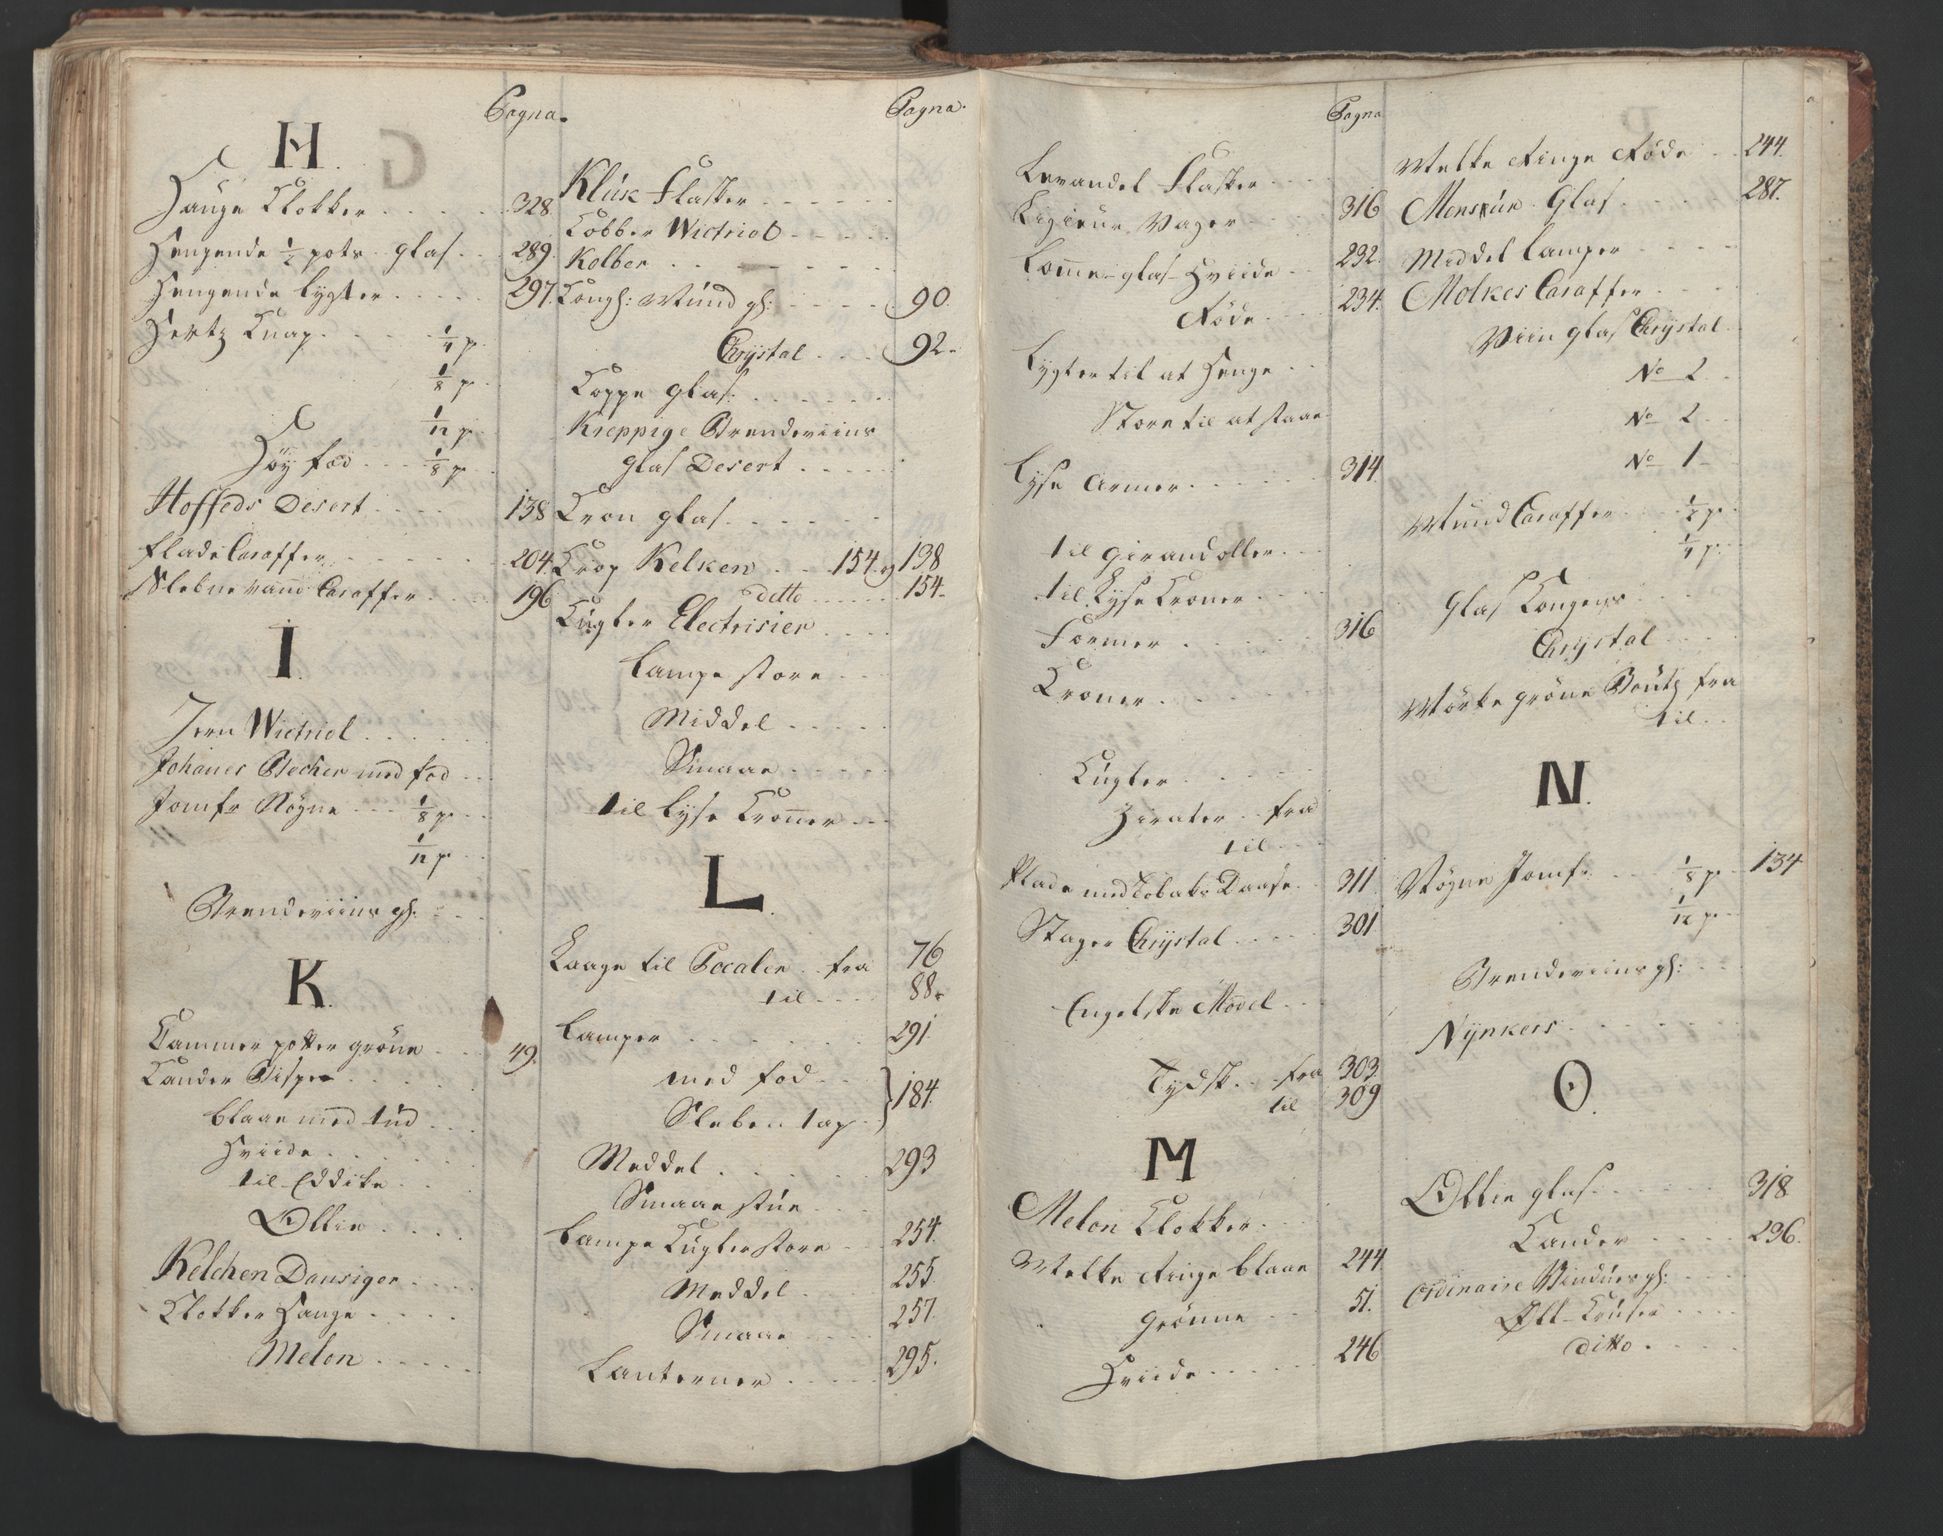 Pagna.
H.
Hauge Klokker 328
Hengende ½ pots glas 289.
Hengende Lygter 297.
Hertz Knap ¼ p
⅛ p
1/12 p
Höy fod ⅛ p
Hoffeds Desert 138
flade Caraffer 204.
Slebne vand Caraffer 196
I.
Jern Wictriol
Johanes Becher med fod
Jomfr Nögne ⅛ p
1/12 p
Brendeviins gl:
K.
Kammer potter gröne 49.
Kander Bispe
blaae med tud
Hviide
til Eddike
Ollie
Kelchen Dansiger
Klokker Hauge
Melon
Pagna.
Kluk Flasker
Kobber Wictriol
Kolber
Kongl: Mund gl: 90.
Chrystal 92.
Koppe glas
Kreppige Brendeviins
glas Desert
Kron glas
Krop Kelken 154 og 138
ditto 154
Kugler Electrisier
Lampe store
Middel
Smaae
til Lyse Kroner
L.
Laage til Pocaler fra 76
til 88
Lamper 291.
med fod
Sleben tap } 184.
Meddel 293
Smaae stue
Lampe Kugler store 254.
Meddel 255.
Smaae 257.
Lanterner 295.
Pagna
Levandel Flasker
Liqieur Vager 316
Lome-glas Hviide 232.
Röde 234.
Lygter til at Henge
Store til at staae
Lyse Armer 314.
til Girandoller
til Lyse Kroner
Former 316
Kroner
Kugler
Zirater fra
til
Plade med Tobaks Daase 311.
Stager Chrystal 301
Engelske Model
Tydsk fra 303.
til 309
M
Melon Klokker
Melke Ringe blaae 244
Grönne 51.
Hviide 246
Melke Ringe Röde 244.
Mensur Glas 287.
Middel Lamper
Molkes Caraffer
Viin glas Chrystal
No 2
No 2
No 1
Mund Caraffer ½ p
¼ p
Glas Kongens
Chrystal
Mörke gröne Boutl fra
til
N.
Nögne Jomfr ⅛ p 134
1/12 p
Brendeviins gl:
Nynkers
O.
Ollie glas 318
Kander 236.
Ordinaire Vinduesgl:
Öll-Kruser
ditto